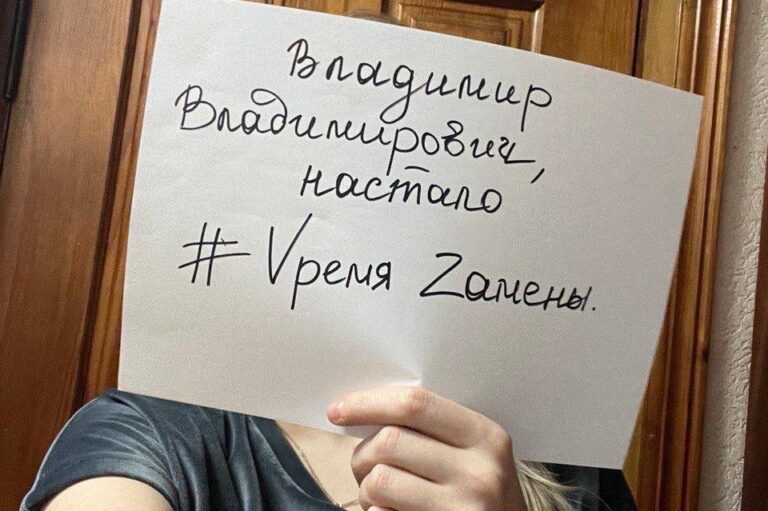 Владимир
Владимирович,
настало
# Vремя Zамены.